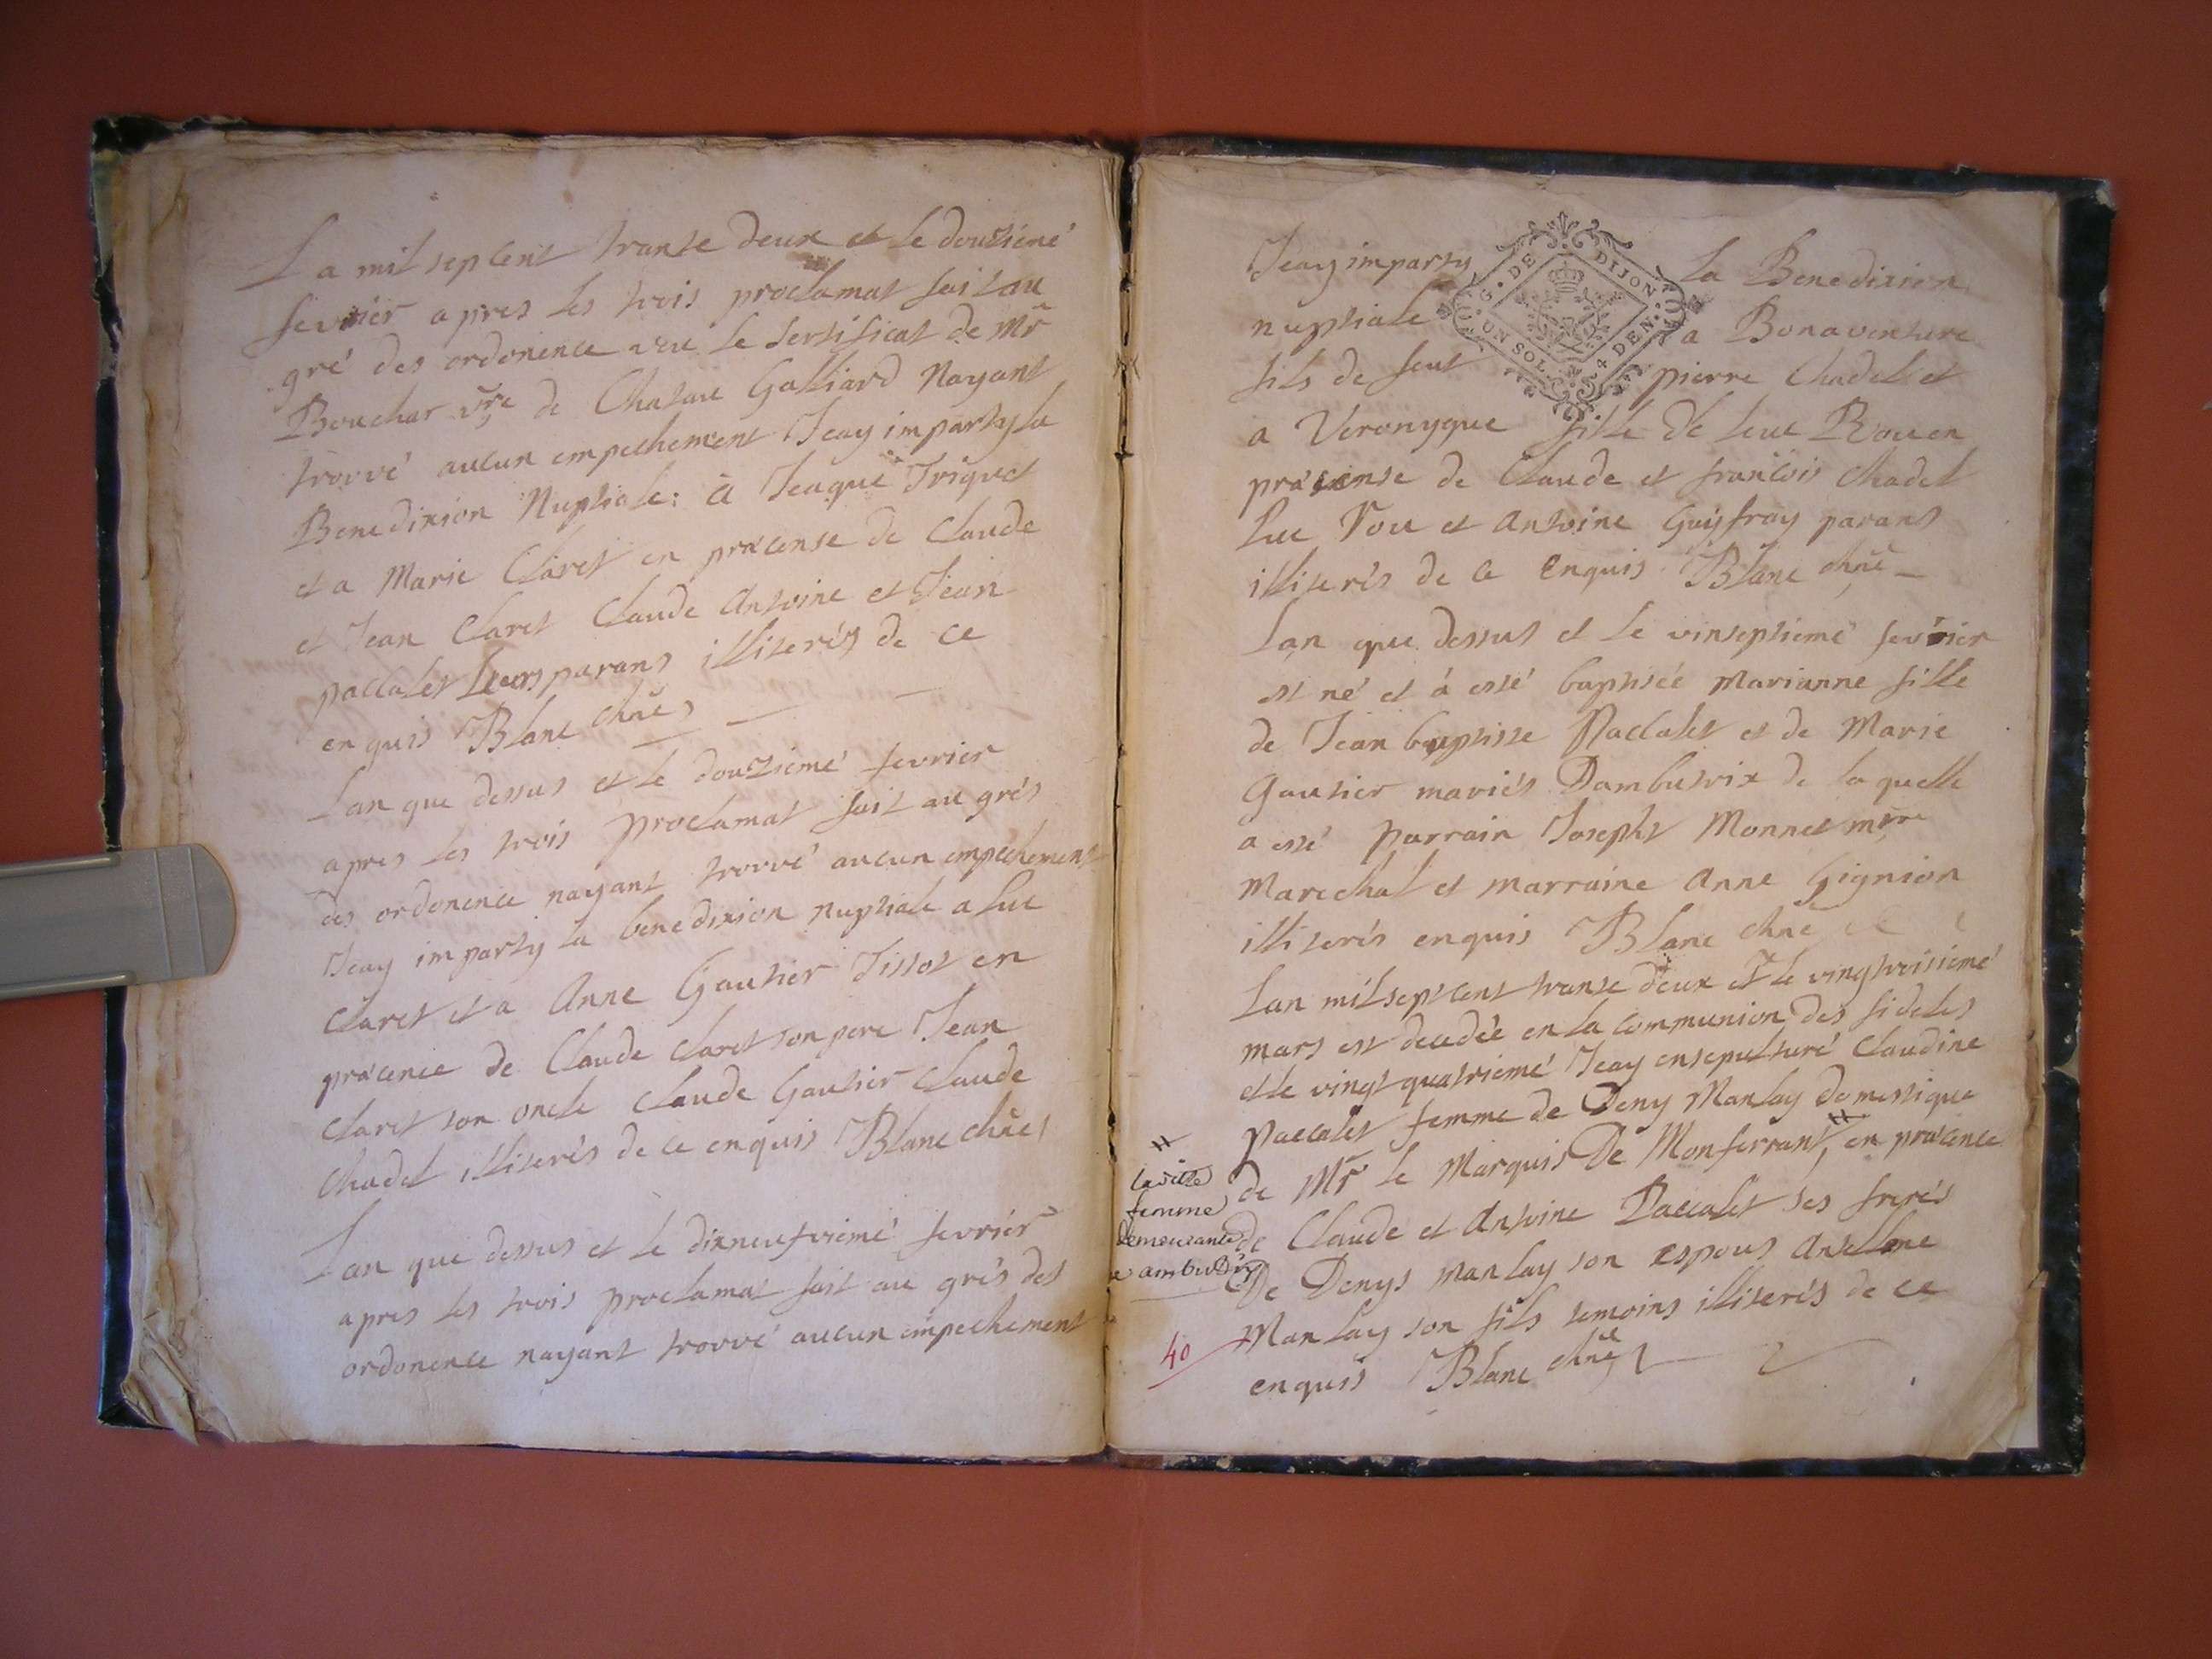 La mil septcent trante deux et le douzieme
fevrier apres les trois proclamat fait au
gré des ordonence veu le sertificat de Mr
Bouchar vre de Chatau Galliard Nayant
trovvé aucun empechement Jeay imparty la
Benedixion Nuptiale: a Jeaque Triquet
et a Marie Claret en præcense de Claude
et Jean Claret Claude Antoine et Jean
paccalet leurs parans illiterés de ce
enquis Blanc chñe
Lan que dessus et le douzieme fevrier
apres les trois proclamat fait au grés
des ordonence nayant trovvé aucun empechement
Jeay imparty la benedixion nuptiale a Luc
Claret et a Anne Gautier Tissot en
præcence de Claude Claret son pere Jean
Claret son oncle Claude Gautier Claude
Chadel illiterés de ce enquis Blanc chñe
Lan que dessus et le dixneufvieme fevrier
apres les trois proclamat fait au grés des
ordonence nayant trovvé aucun empechement
Jeay imparty la Benedixion
nuptiale a Bonaventure
fils de feut pierre Chadel et
a Veronyque fille de Luc Rou en
præcense de Claude et francois Chadel
Luc Rou et Antoine Guyfray parans
illiterés de ce Enquis Blanc chñe
G. DE DIJON
UN SOL. 4 DEN.
Lan que dessus et le vinseptieme fevrier
est né et á esté baptisée Marianne fille
de Jean baptiste Paccalet et de Marie
Gautier mariés Dambutrix de laquelle
a esté parrain Josepht Monnet mtre
Marechal et marraine Anne Gignion
illiterés enquis Blanc chñe
Lan mil septcent trante deux et le vingtroisieme
mars est decedée en la Communion des fideles
et le vingt quatrieme Jeay ensepulturé Claudine
Paccalet femme de Deny Manlay domestique
de Mr le Marquis De Monferrant, en præcence
de Claude et Antoine Paccalet ses freres
De Denys Manlay son espous Antelme
Manlay son fils temoins illiterés de ce
enquis Blanc chñe
ladite
femme
demeurante
a ambutrix
40